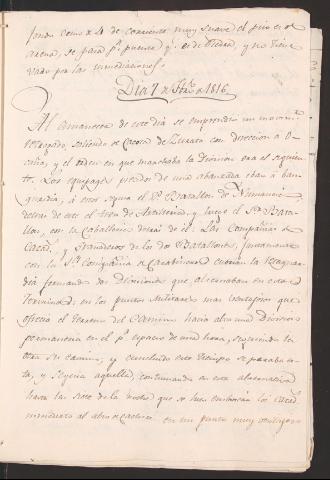 fondo como x 4 de corriente muy suave el piso es de
arena, se pasa pr. puente qe. es de Piedra, y no tiene
vado por las inmediaciones.
Dia 7 de de 1816.
Al amanecer de este dia se emprendio un movimto.
retrogrado, saliendo de Cacota de con direccion a O
caña, y el orden en que marchaba la Division era el siguien
te. Los equipages precedidos de una abanzada iban á ban
guardia; á estos seguia el Batallon de Numancia,
detras de este el tren de Artilleria, y luego el Bata
llon, con la Caballeria detras de él. Las Compañias de
Cazads. y Granaderos de los dos Batallones, juntamente
con la Compañia de Carabineros cubrian la Retaguar
dia formando dos Divisiones que alternaban en estos
terminos: en los puntos Militares mas ventajosos que
ofrecia el terreno del Camino hacia alto una Division
permanecia en el espacio de media hora, siguiendo la
otra su camino; y concluido este tiempo se paraba es
ta, y seguia aquella, continuando en esta alternativa
hasta las siete de la noche que se hizo Cazads.
inmediato al alto de Cachiri en un punto muy ventajoso